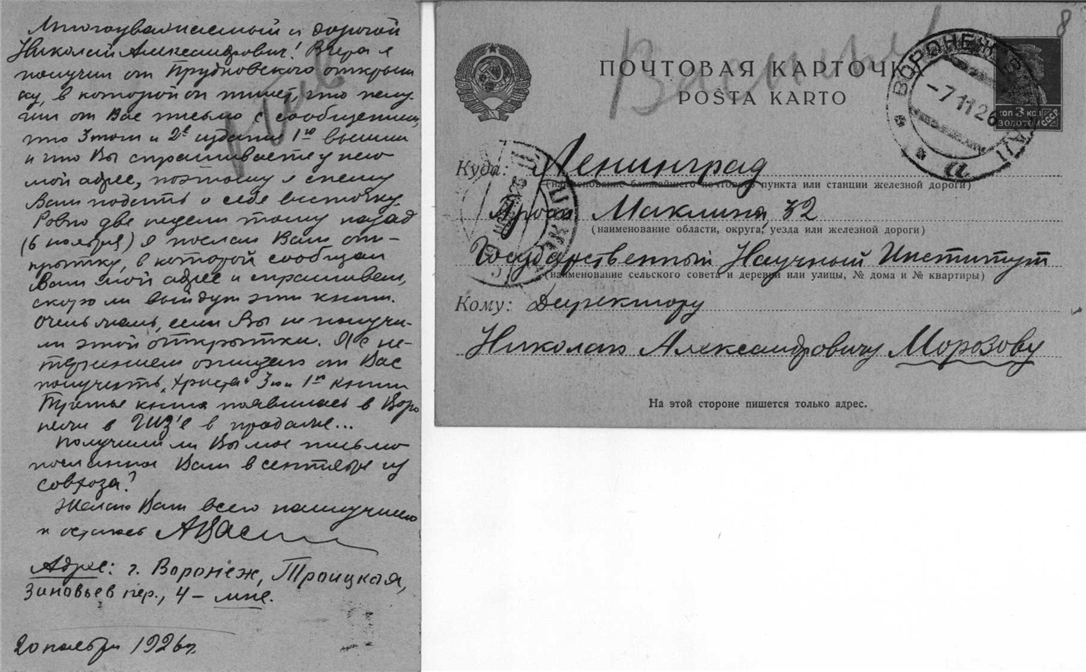 Многоуважаемый и дорогой
Николай Александрович! Вчера я
получил от Прудковского открыт
ку, в которой он пишет, что полу
чил от Вас письмо с сообщением,
что 3 том и 2е издание 1го вышли
и что Вы спрашиваете у него
мой адрес, поэтому я спешу
Вам подать о себе весточку.
Ровно две недели тому назад
(6 ноября) я послал Вам от-
крытку, в которой сообщал
Вам мой адрес и спрашивал,
скоро ли выйдут эти книги.
Очень жаль, если Вы не получи-
ли этой открытки. Я с не-
терпением ожидаю от Вас
получить "Христа" 3ю и 1ю книги
Третья книга появилась в Воро
неже в ГИЗ'е в продаже...
Получили ли Вы мое письмо
посланное Вам в сентябре из
совхоза?
Желаю Вам всего наилучшего
и остаюсь
Адрес: г. Воронеж, Троицкая,
Зиновьев пер., 4 - мне.
20 ноября 1926 г.
8
ПОЧТОВАЯ КАРТОЧКА
POŜTA KARTO
ВОРОНЕЖ
-7 11 26
а
3 КОП
ЗОЛОТОМ
Куда: Ленинград
(наименование ближайшего почтового пункта или станции железной дороги)
Маклина 32
(наименование области, округа, уезда или железной дороги)
Государственный Научный Институт
(наименование сельского совета и деревни или улицы, № дома и № квартиры)
Кому: Директору
Николаю Александровичу Морозову
На этой стороне пишется только адрес.